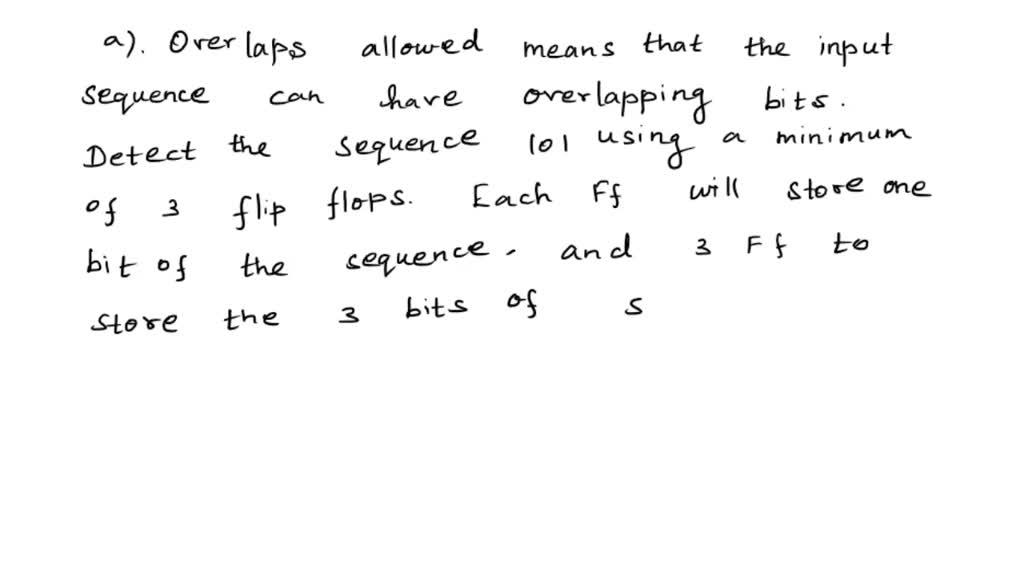 a). Overlaps allowed means that the input
sequence can have overlapping bits.
Detect the sequence 101 using a minimum
of 3 flip flops. Each Ff will store one
bit of the sequence. and 3 Ff to
store the 3 bits of s